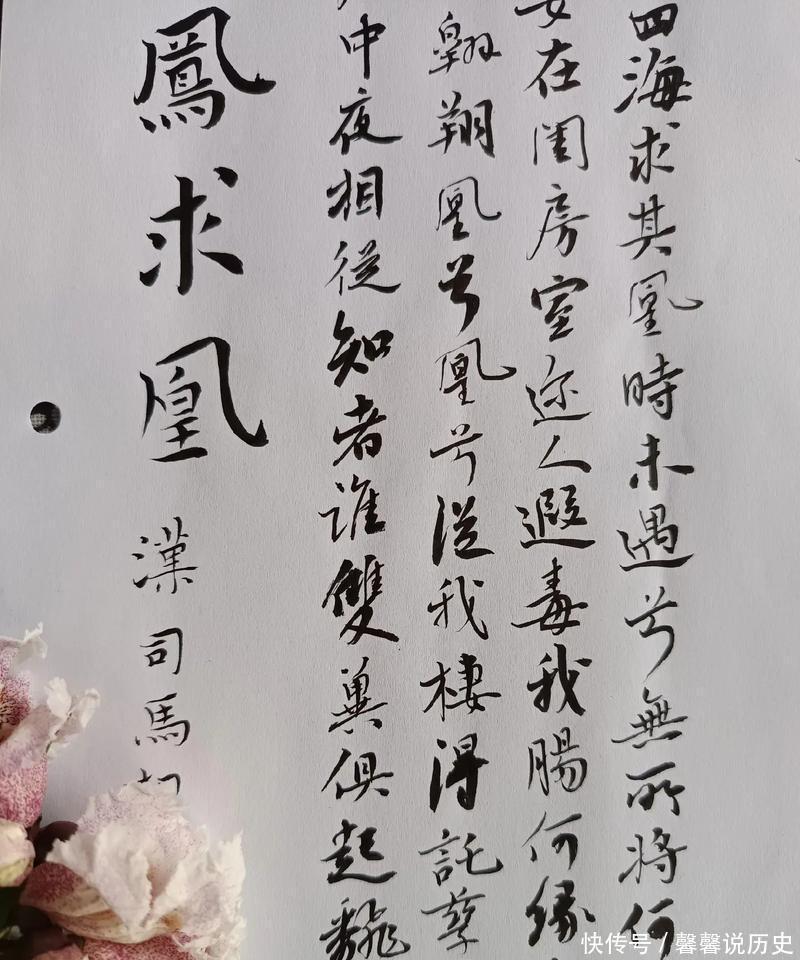 四海求其凰時未遇兮無所將何
女在闺房室迩人遐毒我腸何缘
翱翔凰兮凰兮從我棲得託孳
中夜相從知者誰雙翼俱起飜
鳳求凰 漢司馬
快传号 / 馨馨说历史